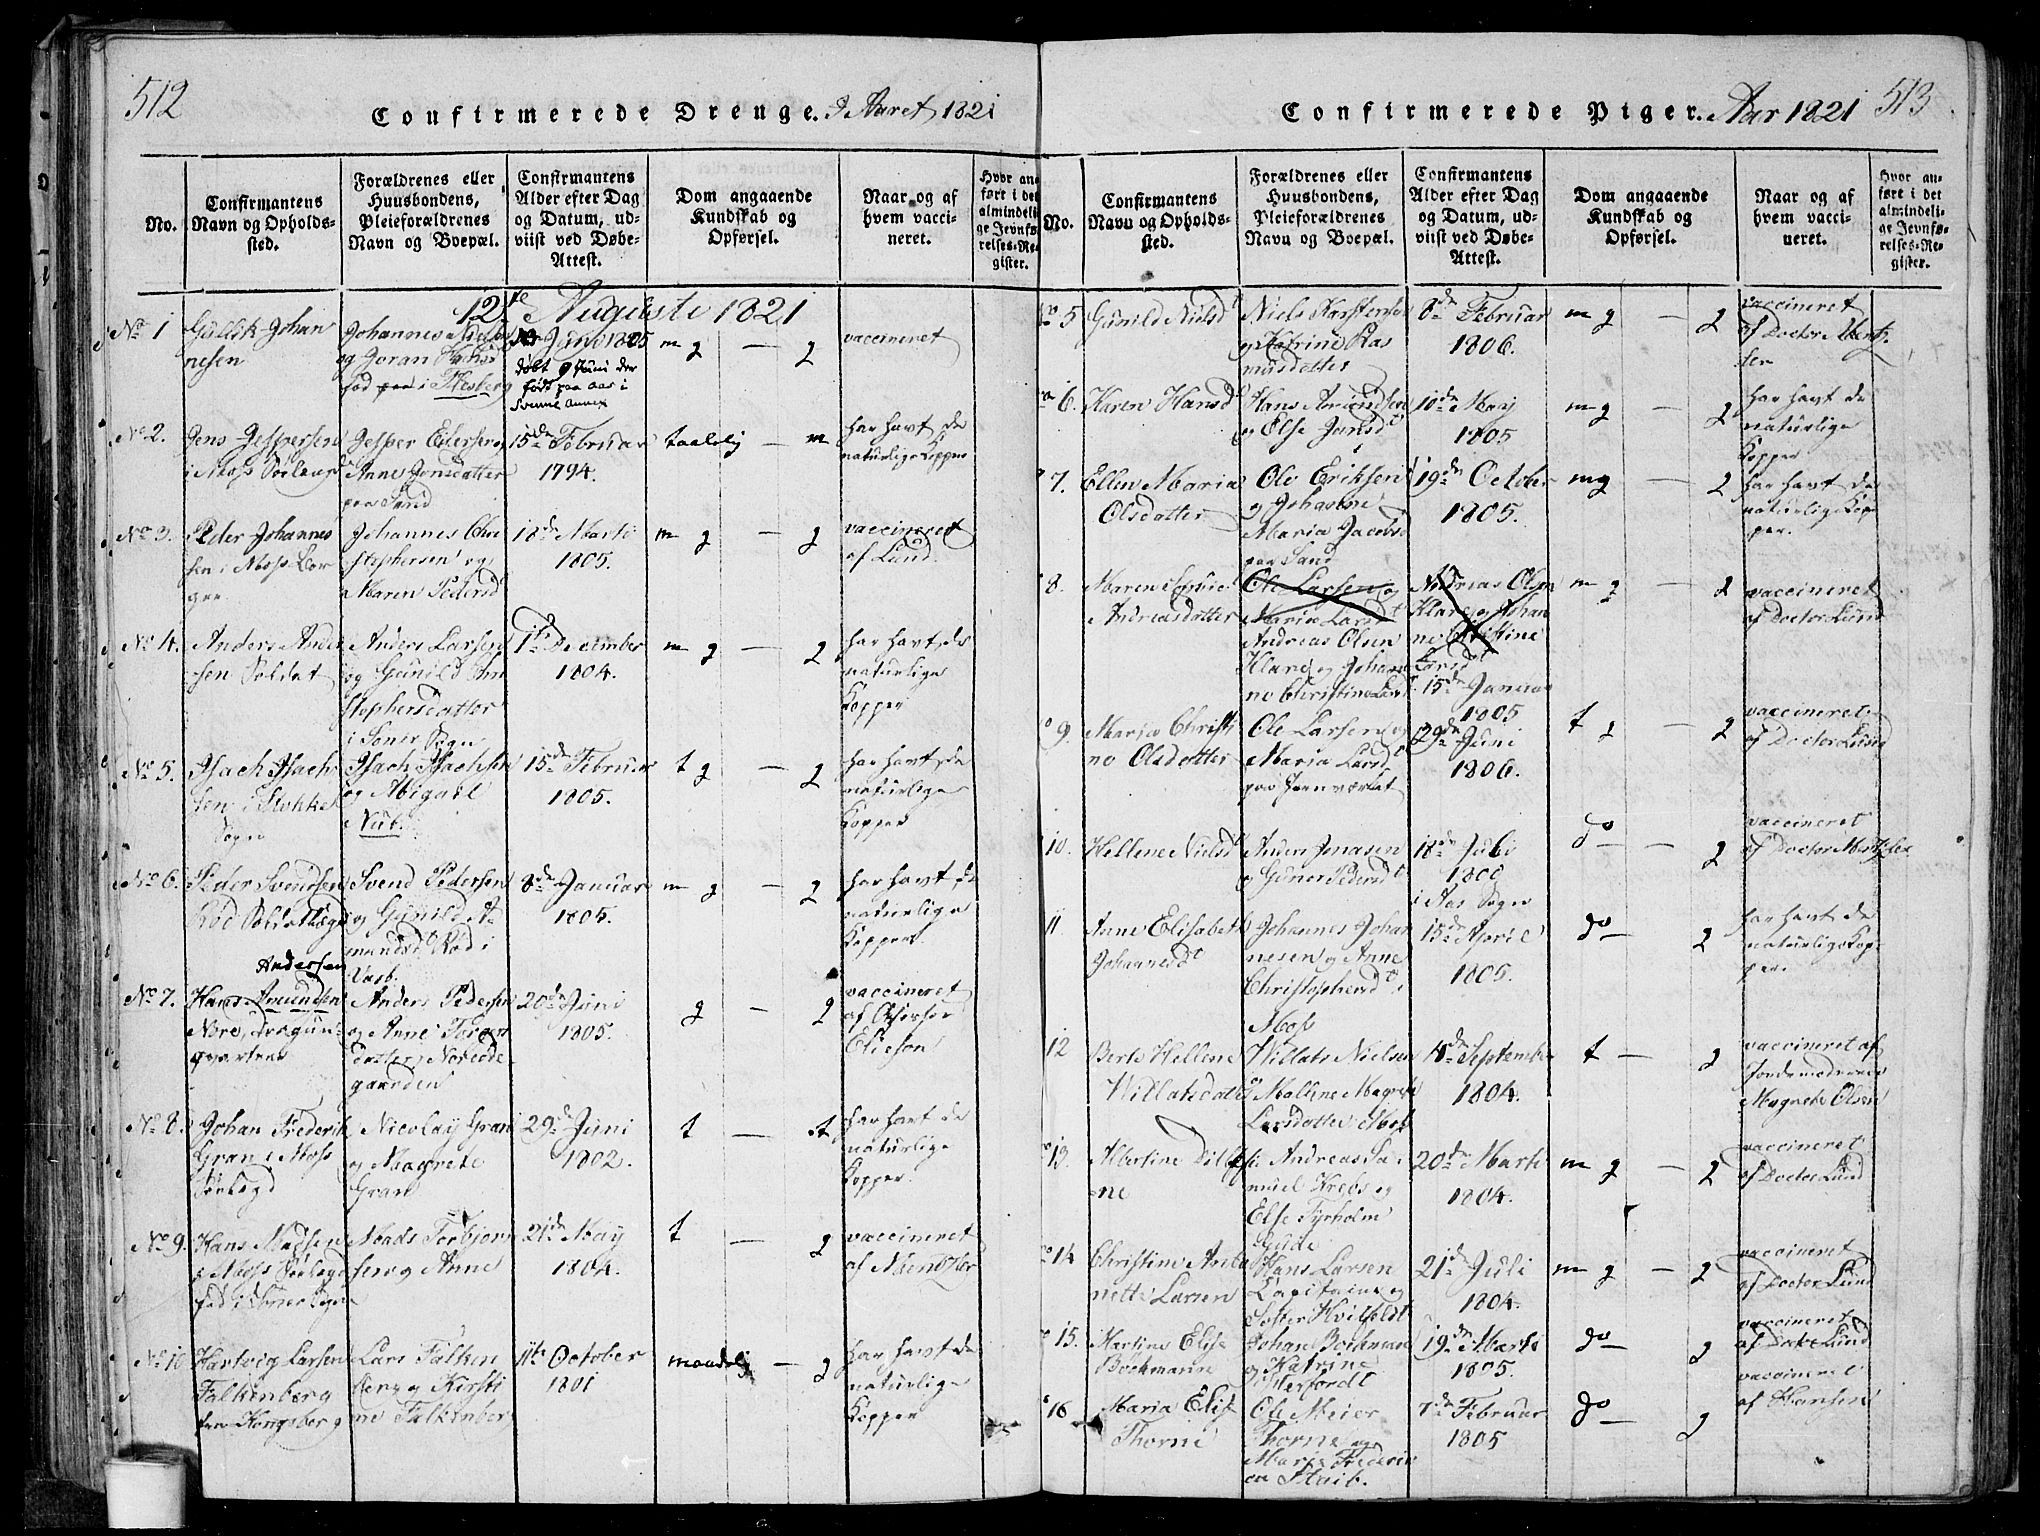 512
Confirmerede Drenge. I Aaret 1821
No.
Confirmantens
Navn og Opholds-
sted.
Forældrenes eller
Huusbondens,
Pleieforældrenes
Navn og Boepæl.
Confirmantens
Alder efter Dag
og Datum, ud-
viist ved Døbe-
Attest.
Dom angaaende
Kundskab og
Opførsel.
Naar og af
hvem vacci-
neret.
Hvor an-
ført i det
almindeli-
ge Jevnfø-
relses-Re-
gister.
12te Auguste 1821
No 1
Gullik Johan
nesen
Johannes
og Joran
fød i Flesberg
Juni 1805
døbt 9 Juni der
født paa Aar i
Svenne Annex
m g — g
vaccineret
No 2.
Jens Jespersen
i Moss
Jesper
Anne Jonsdatter
paa Sand
15de Februar
1794.
taalelig — m
har havt de
naturlige Kopper
No 3.
Peder Johannes
sen i Moss
Johannes Chri
stophersen og
Maren Pedersd
18de Marts
1805.
m g — g
vaccineret
af Lund
No 4.
Anders Ander
sen Soldat
Anders Larsen
og Gunild Chri
stophersdatter
i Soner Sogn
1te December
1804.
m g — g
har havt de
naturlige
Kopper
No 5.
Isach Isach
sen i Stokke
Sogn
Isach Isachsen
og Abigael
Nub.
15de Februar
1805.
t g — g
har havt de
naturlige
Kopper
No 6.
Peder Svendsen
Rød
Svend Pedersen
og Gunild A
mundsd Rød i
8de Januar
1805.
m g — g
har havt de
naturlige
Kopper
No 7.
Andersen
Hans Amundsen
Nore, Dragun
qvarteer
Anders Pedersen
og Anne
datter, Norøde
gaarden
20de Juni
1805.
g — g
vaccineret
af
Elieson
No 8.
Johan Frederik
Gran i Moss
Nicolay Gran
og Magrete
Gran
29de Juni
1802.
t — t
har havt de
naturlige
Kopper
No 9.
Hans Madsen
i Moss
fød i Soner Sogn
Mads Torbjørn
sen og Anne
21de May
1804.
t — g
vaccineret
af
No 10
Hartvig Larsen
Falkenberg
Kongsberg
Lars Falken
berg og Kirsti
ne Falkenberg
11te October
1801
maadelig — g
har havt de
naturlige
Kopper
Confirmerede Piger. Aar 1821
513
No.
Confirmantens
Navn og Opholds-
sted.
Forældrenes eller
Huusbondens,
Pleieforældrenes
Navn og Boepæl.
Confirmantens
Alder efter Dag
og Datum, ud-
viist ved Døbe-
Attest.
Dom angaaende
Kundskab og
Opførsel.
Naar og af
hvem vacci-
neret.
Hvor an-
ført i det
almindeli-
ge Jevnfø-
relses-Re-
gister.
5
Gunild Nielsd
Niels Karstensen
og Katrine Ras
musdatter
8de Februar
1806.
m g — g
vaccineret
af Doctor
6.
Karen Hansd
Hans Amundsen
og Else Jensd
10de May
1805
m g — g
har havt de
naturlige
Kopper
7.
Ellen Maria
Olsdatter
Ole Eriksen
og Johanne
Maria Jacobsd
paa Sand
19de October
1805.
mg — g
har havt de
naturlige Kop
per.
8.
Maren Sophie
Andreasdatter
Ole Larsen og
Maria Larsd
Andreas Olsen
Klare og Johan
ne Christine Larsd
Andreas Olsen
Klare og Johan
ne Christine
Larsd
15de Januar
1805
m g — g
vaccineret
af Doctor Lund
9.
Maria Christi
ne Olsdatter
Ole Larsen og
Maria Larsd
paa Jernværket
29de Juni
1806.
t g — g
vaccineret
af Doctor Lund
10.
Hellene Nielsd
Anders Jonasen
og Gunor Pedersd
18de Juli
i Aas Sogn
do — g
vaccineret
af Doctor
11
Anne Elisabeth
Johannesd
Johannes Johan
nesen og Anne
Christophersd i
Moss
15de April
1805.
do — g
har havt de
naturlige Kop
per.
12
Berte Hellene
Willatsdatter
Willats Nielsen
og Malene Magrete
Larsdatter Moss
4de September
1804.
t — g
vaccineret af
Jordemoderen
Magrete Olsen
13.
Albertine
ne
Andreas Sa
muel Krebs og
Else Tyrholm
Gude
20de Marts
1804.
m g — g
vaccineret
af Doctor Lund
14
Christine Anto
nette Larsen
Hans Larsen
Capitaine og
Hvitfeldt
21de Juli
1804.
m g — g
vaccineret
af Doctor Lund
15.
Martine Elise
Bochmann
Johan Bochmann
og Katrine
19de Marts
1805.
do — g
vaccineret
af Doctor Lund
16
Maria Elise
Thorne
Ole Meier
Thorne og
Marie Frederik
ca Staib.
7de Februar
1805
do — g
vaccineret
af Hansen